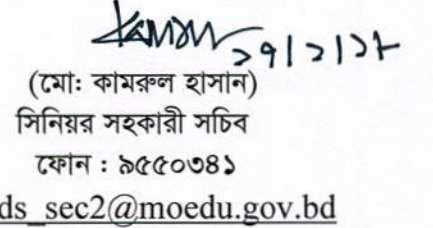 (মো: কামরুল হাসান)
সিনিয়র সহকারী সচিব
ফোন : ৯৫৫০৩৪১
ds_sec2@moedu.gov.bd